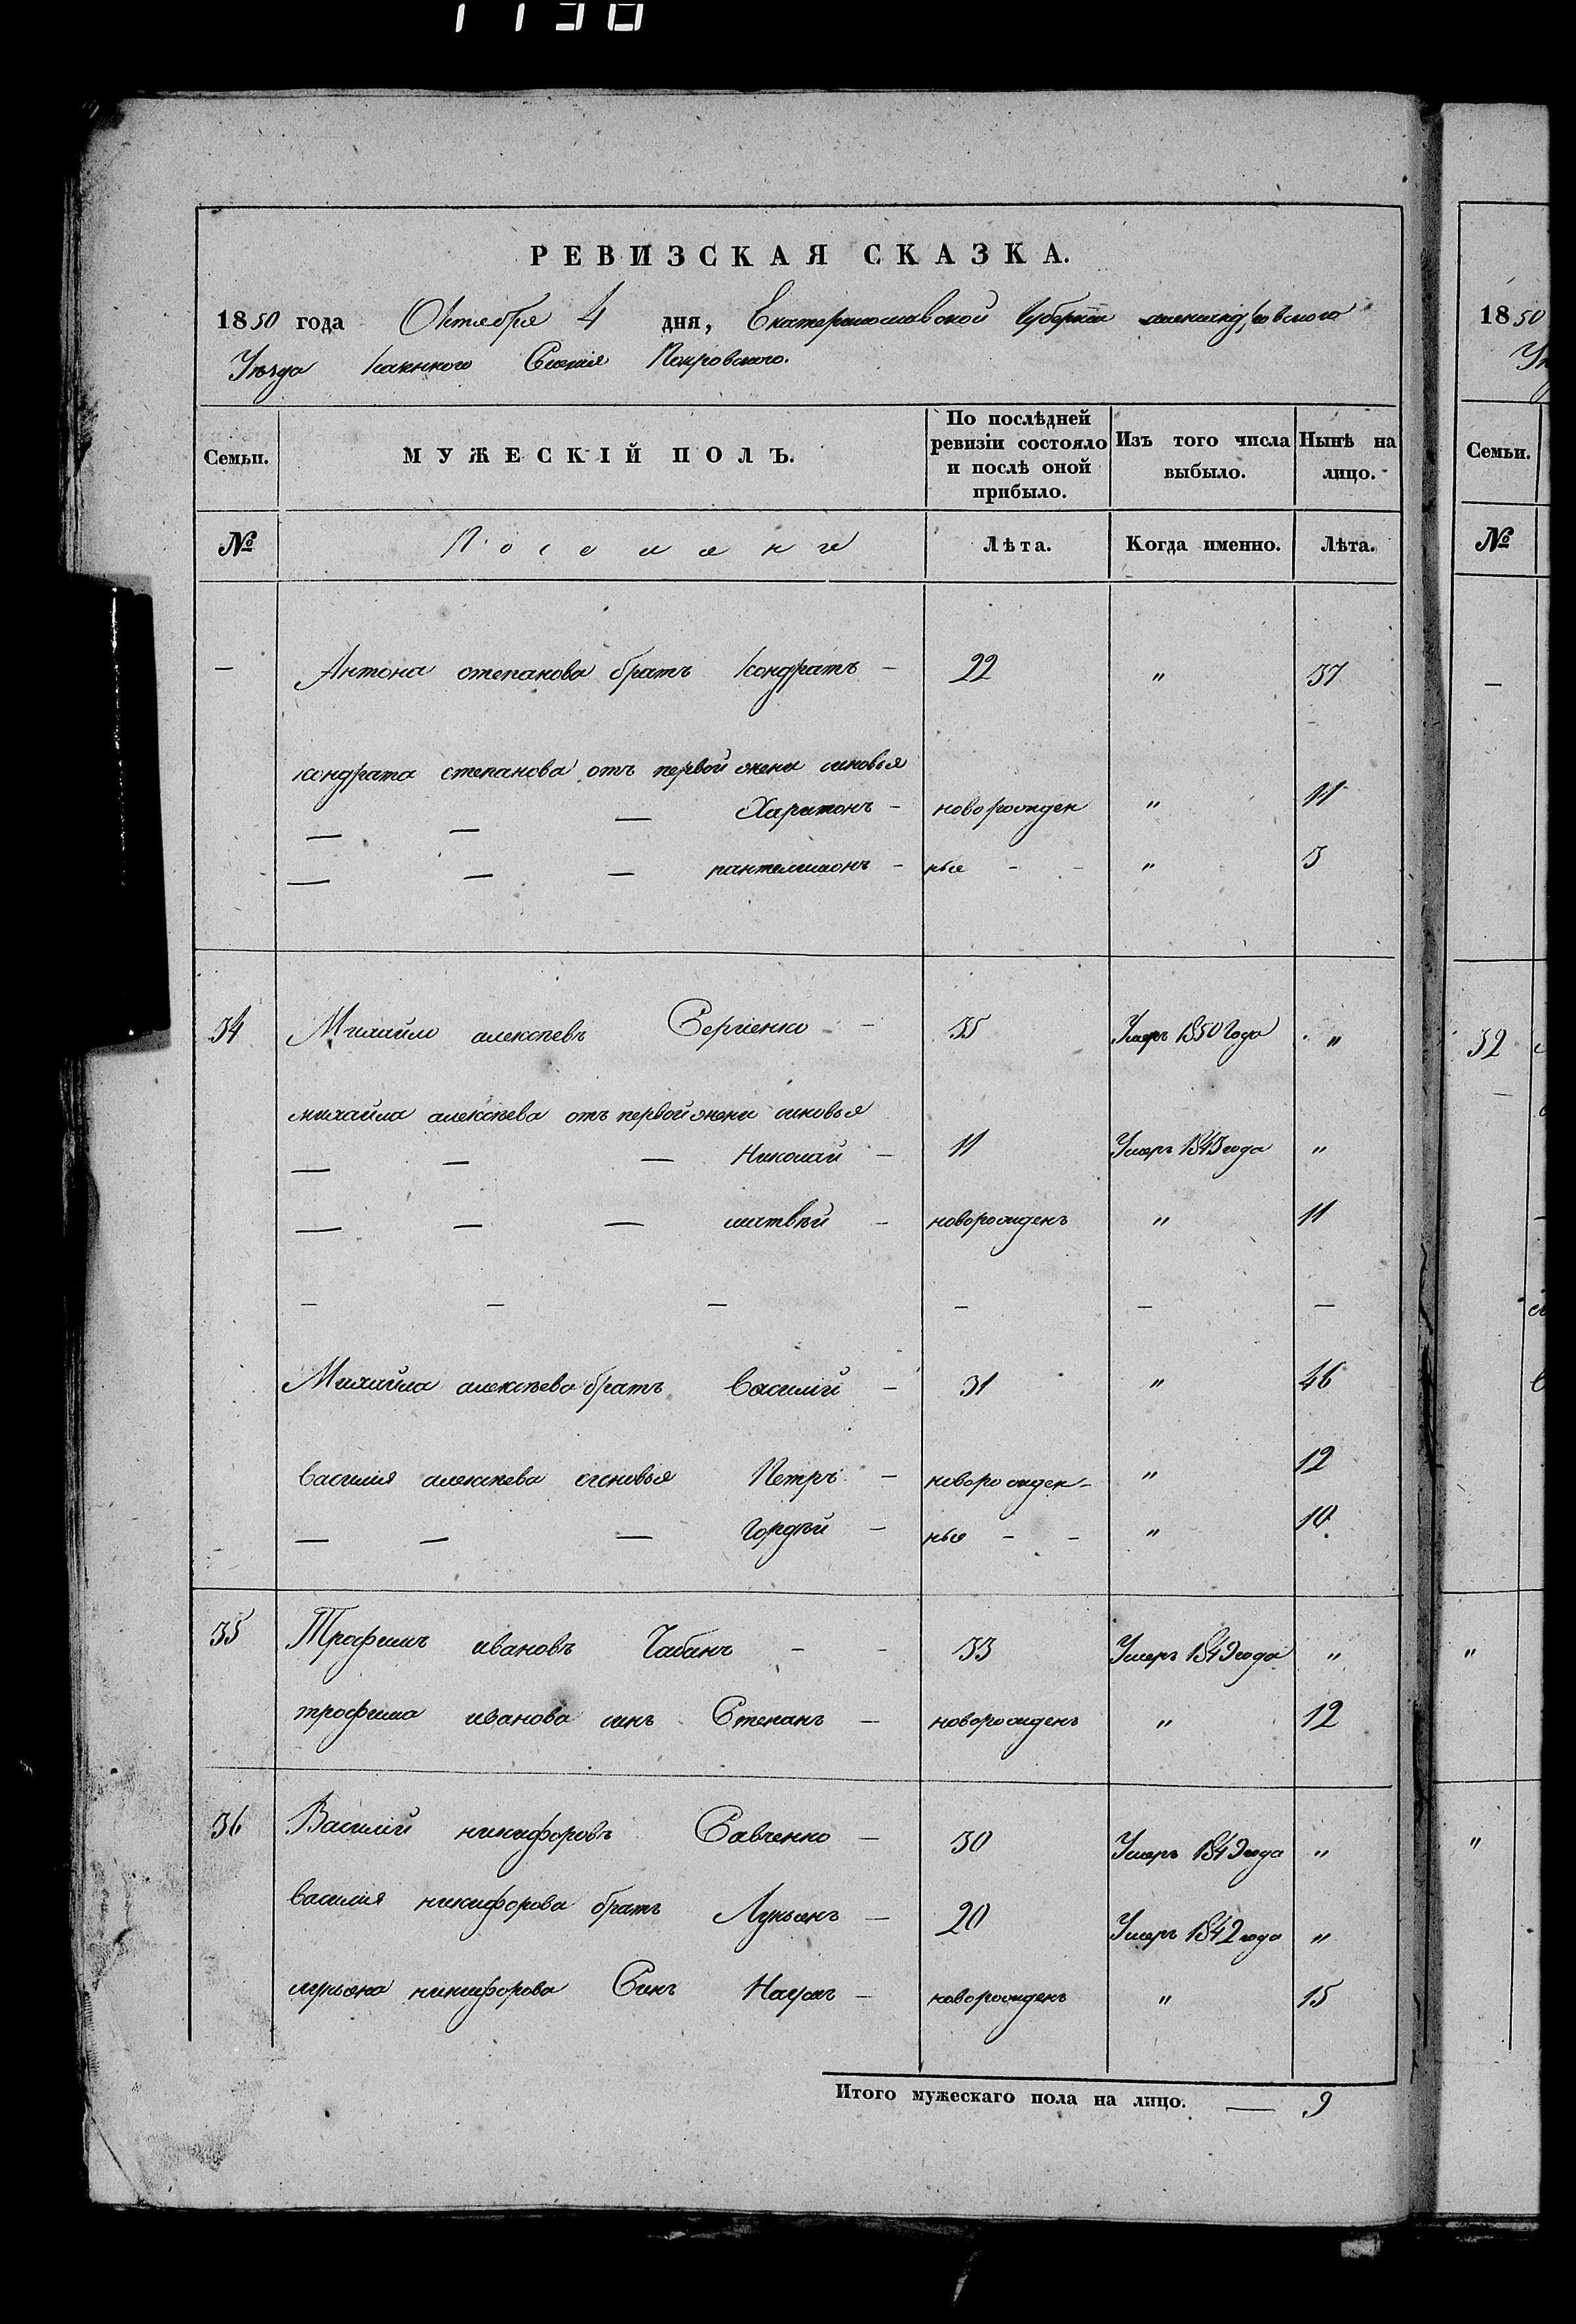 РЕВИЗСКАЯ СКАЗКА.
1850 года Октября 4 дня, Екатеринославской Губернии александровского
Уезда казенного Селения Покровского.
Семьи. МУЖЕСКІЙ ПОЛЪ. По послѣдней ревизіи состояло и послѣ оной прибыло. Изъ того числа выбыло. Нынѣ на лицо.
№ Поселяне Лѣта. Когда именно. Лѣта.
— Антона степанова братъ Кондратъ — 22 " 37
кондрата степанова отъ первой жени синовья
— — — Харитонъ — новорожден " 11
— — — пантелимонъ — ные - - " 3
34 Михайло алексѣевъ Сергіенко — 35 Умеръ 1850 Года "
михайла алексѣева отъ первой жени синовья
— — — Николай — 11 Умеръ 1843 года "
— — — матвѣй — новорожденъ " 11
— — — — — —
Михайла алексѣева братъ Василій — 31 " 46
василия алексѣева синовья Петръ — новорожден- " 12
— — — Гордѣй — ные - - " 10
35 Трофимъ ивановъ Чабанъ — — 33 Умеръ 1849 года "
трофима иванова синъ Степанъ — новорожденъ " 12
36 Василий никифоровъ Савченко — 30 Умеръ 1849 года "
василия никифорова братъ Лукьянъ — 20 Умеръ 1842 года "
лукьяна никифорова Синъ Наумъ — новорожденъ " 15
Итого мужескаго пола на лицо. — 9
1850
Семьи.
№
—
32
"
"